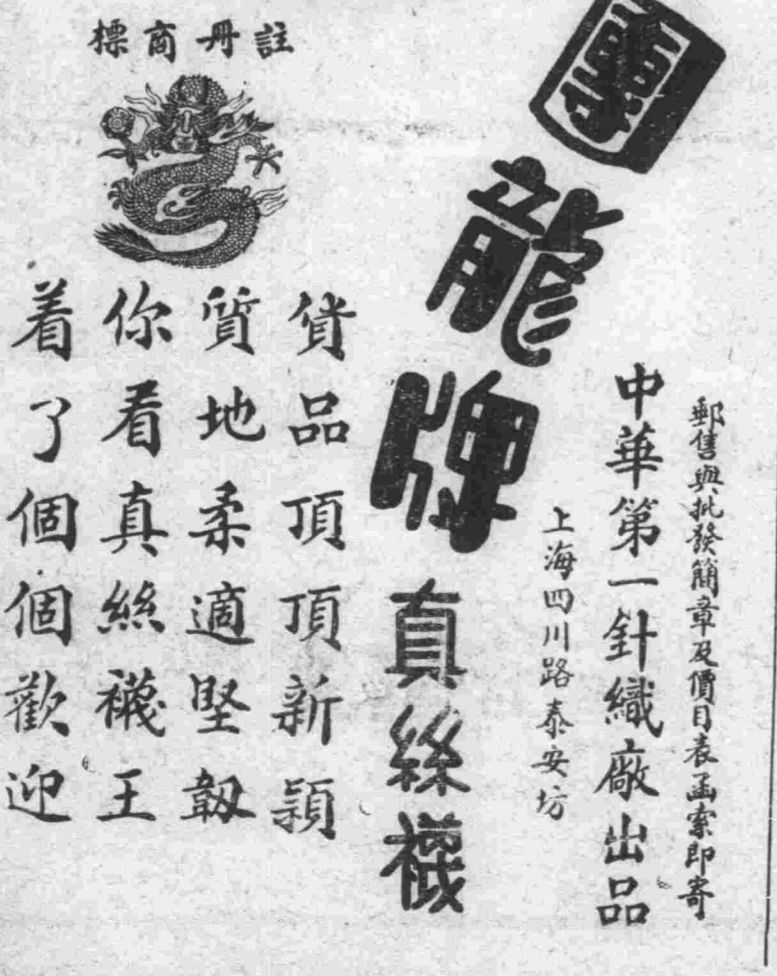 郵售與批發簡章及價目表函索即寄
中華第一針織廠出品
上海四川路泰安坊
團龍牌
真絲襪
註冊商標
貨品頂頂新穎
質地柔適堅韌
你看真絲襪王
着了個個歡迎